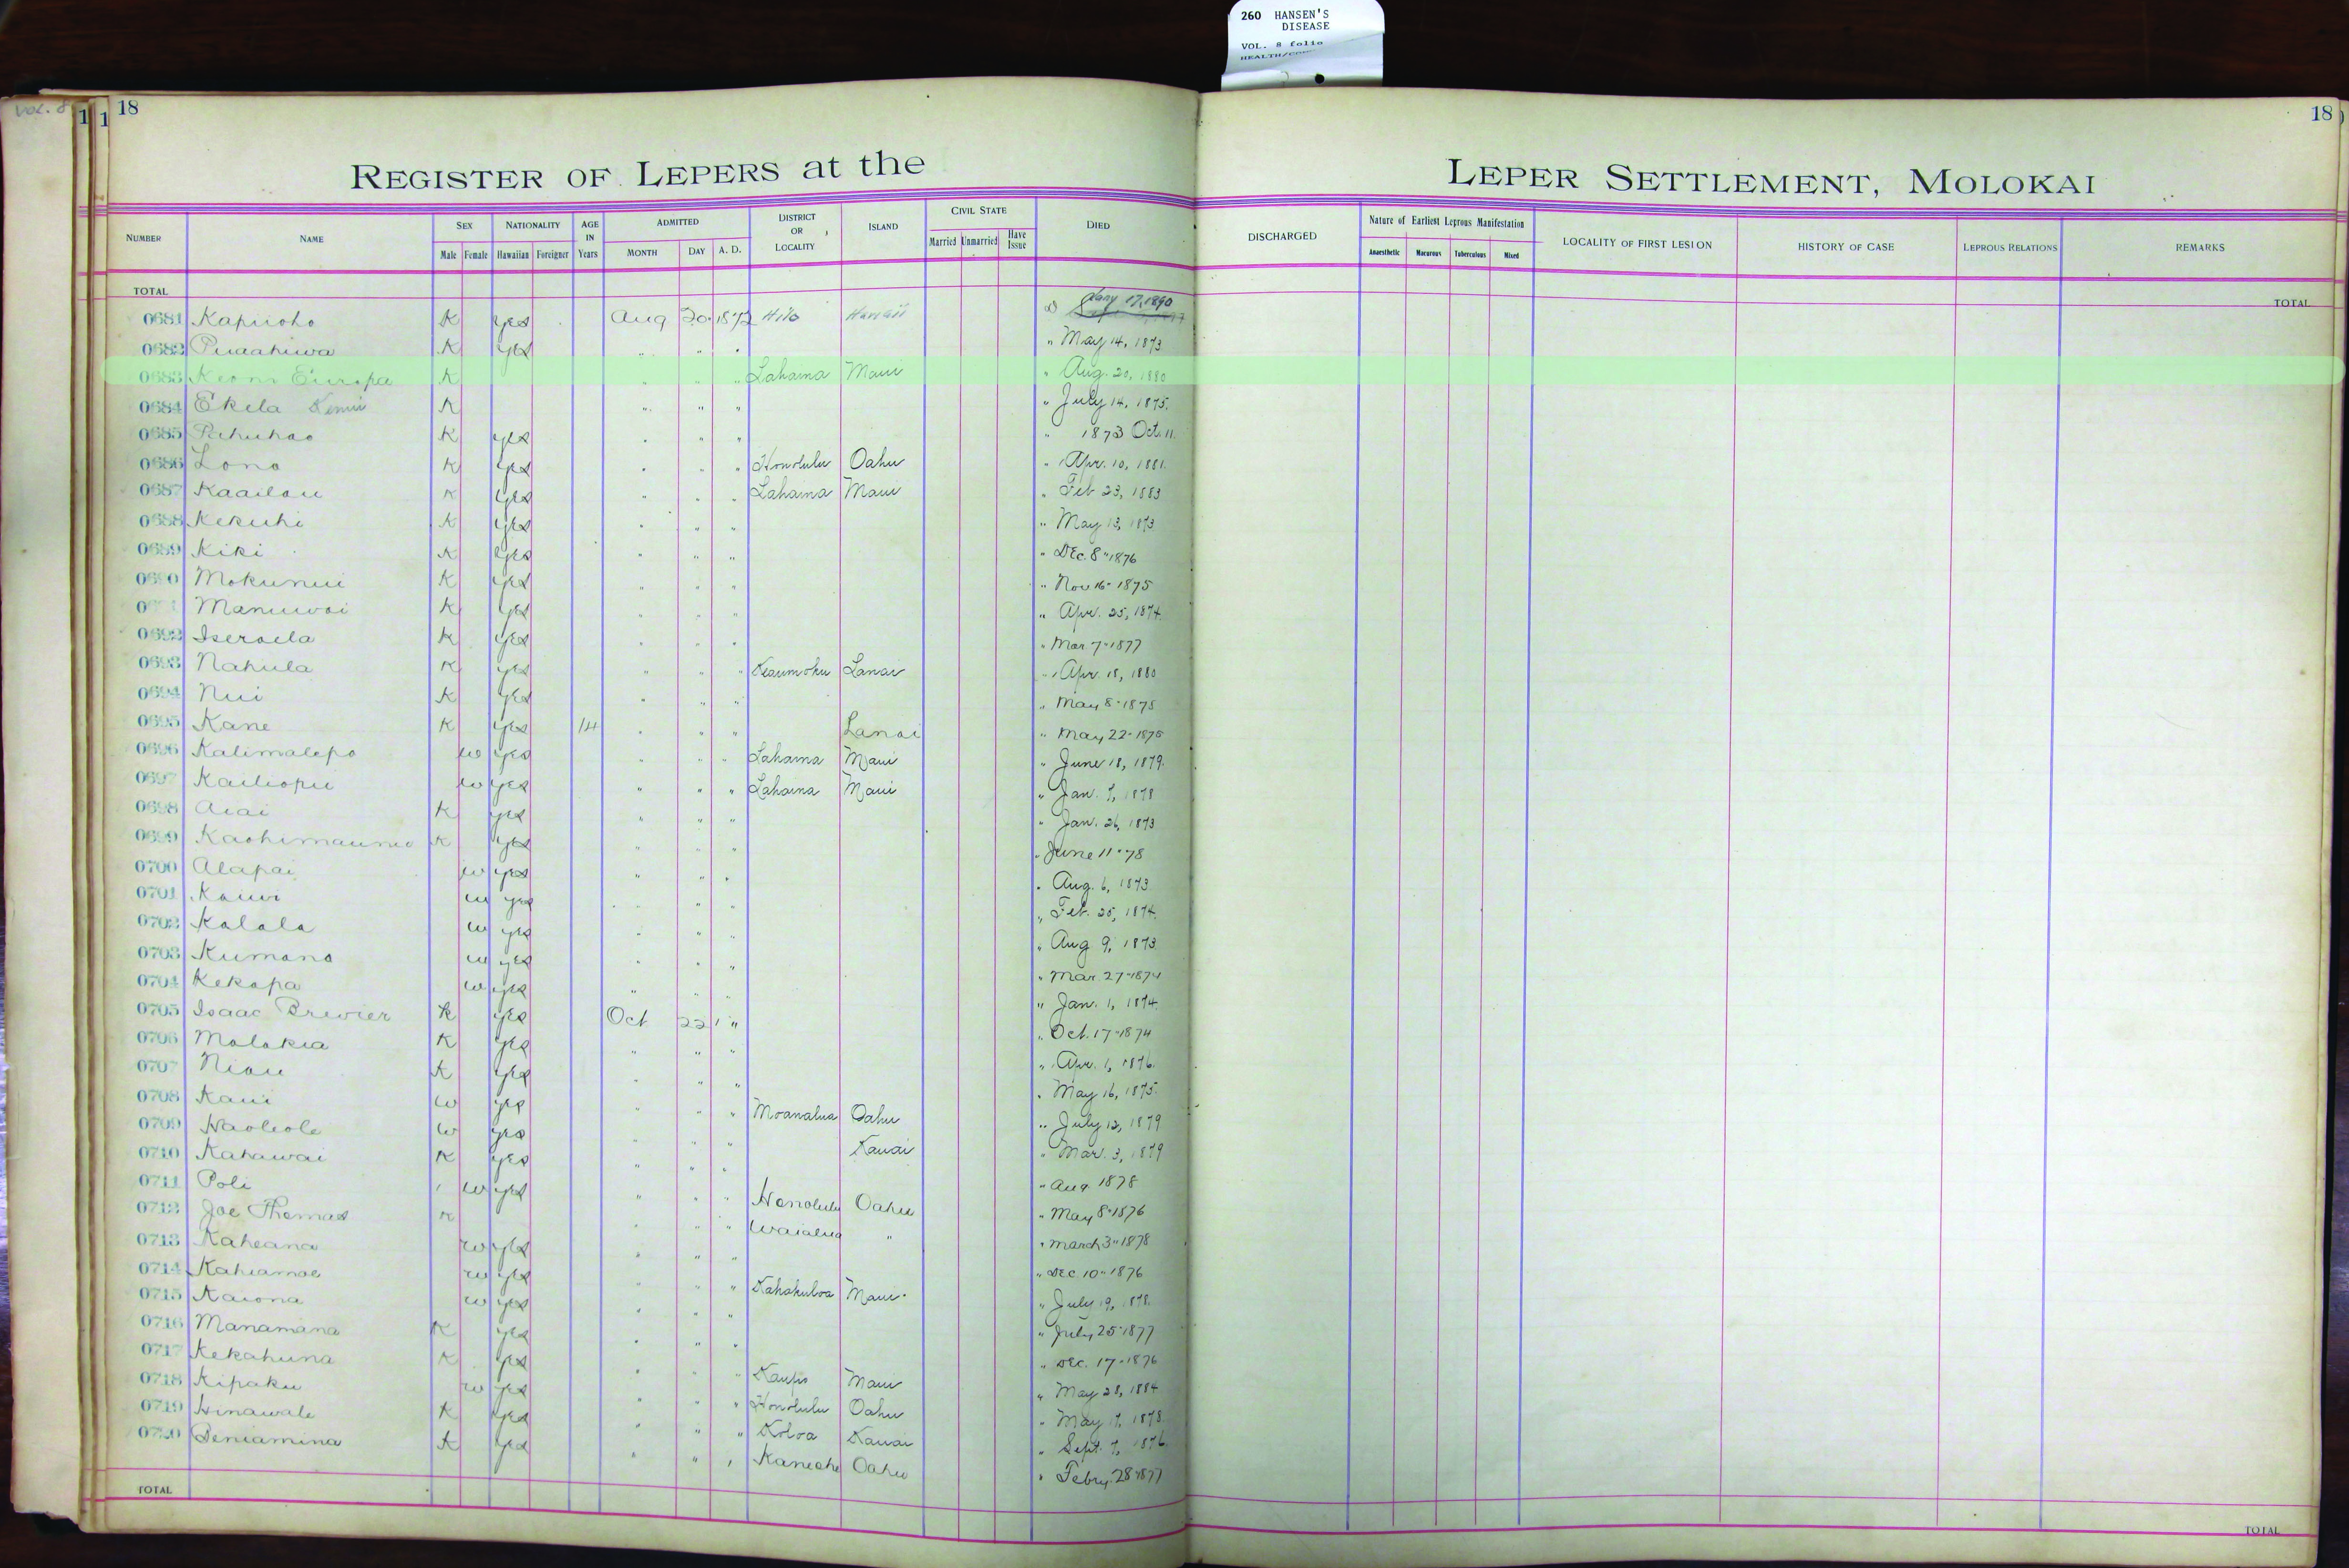 260 HANSEN'S
DISEASE
VOL. 8 folio
VOL. 8
18
18
REGISTER OF LEPERS at the LEPER SETTLEMENT, MOLOKAI
NUMBER NAME SEX Male Female NATIONALITY Hawaiian Foreigner AGE IN Years ADMITTED MONTH DAY A. D. DISTRICT OR LOCALITY ISLAND CIVIL STATE Married Unmarried Have Issue DIED DISCHARGED Nature of Earliest Leprous Manifestation Anaesthetic Tuberculous Mixed LOCALITY OF FIRST LESION HISTORY OF CASE LEPROUS RELATIONS REMARKS
TOTAL TOTAL
0681 Kapiioho K yes Aug 20 1872 Hilo Hawaii Jany 17, 1890
0682 Puaahiwa K yes " " " " May 14, 1873
0683 Keoni Europa K " " " Lahaina Maui " Aug. 20, 1880
0684 Ekela K " " " " July 14, 1875.
0685 Pahuhao K yes " " " " 1873 Oct. 11.
0686 Lono K yes " " " Honolulu Oahu " Apr. 10, 1881.
0687 Kaailau K yes " " " Lahaina Maui " Feb 23, 1883
0688 Kekuhi K yes " " " " May 13, 1873
0689 Kiki K yes " " " " DEc. 8" 1876
0690 Mokunui K yes " " " " Nov 16- 1875
Manuwai K yes " " " " Apr. 25, 1874.
0692 Iseraela K yes " " " " Mar 7" 1877
0693 Nahula K yes " " " Keaumoku Lanai " Apr. 18, 1880
0694 Nui K yes " " " " May 8" 1875
0695 Kane K yes 14 " " " Lanai " May 22- 1875
0696 Kalimalepo w yes " " " Lahaina Maui " June 18, 1879.
0697 Kailiopu w yes " " " Lahaina Maui " Jan. 7, 1878
0698 Aiai K yes " " " " Jan. 26, 1873
0699 K yes " " " " June 11" 78
0700 Alapai w yes " " " " Aug. 6, 1873
0701 Kauwi w yes " " " " Feb. 25, 1874.
0702 Kalala w yes " " " " Aug 9, 1873
0703 Kumano w yes " " " " Mar 27- 1874
0704 Kekapa w yes " " " " Jan. 1, 1874.
0705 Isaac Brewier K yes Oct 22 " " Oct. 17- 1874
0706 Molokia K yes " " " " Apr. 1, 1876.
0707 Niau K yes " " " " May 16, 1875.
0708 Kaui w yes " " " Moanalua Oahu " July 12, 1879
0709 Haoleole w yes " " " Kauai " Mar. 3, 1879
0710 Kahawai K yes " " " " Aug 1878
0711 Poli w yes " " " Honolulu Oahu " May 8" 1876
0712 Joe Thomas K " " " Waialua " " March 3" 1878
0713 Kaheana w yes " " " " DEC. 10" 1876
0714 Kahiamoe w yes " " " Kahakuloa Maui " July 19, 1878.
0715 Kaiona w yes " " " " July 25" 1877
0716 Manamana K yes " " " " DEC. 17- 1876
0717 Kekahuna K yes " " " Kaupo Maui " May 28, 1884
0718 Kipaku w yes " " " Honolulu Oahu " May 17, 1878.
0719 Hinawale K yes " " " Koloa Kauai " Sept. 7, 1876.
0720 Beniamina K yes " " " Kaneohe Oahu " Febry. 28" 1877
TOTAL TOTAL